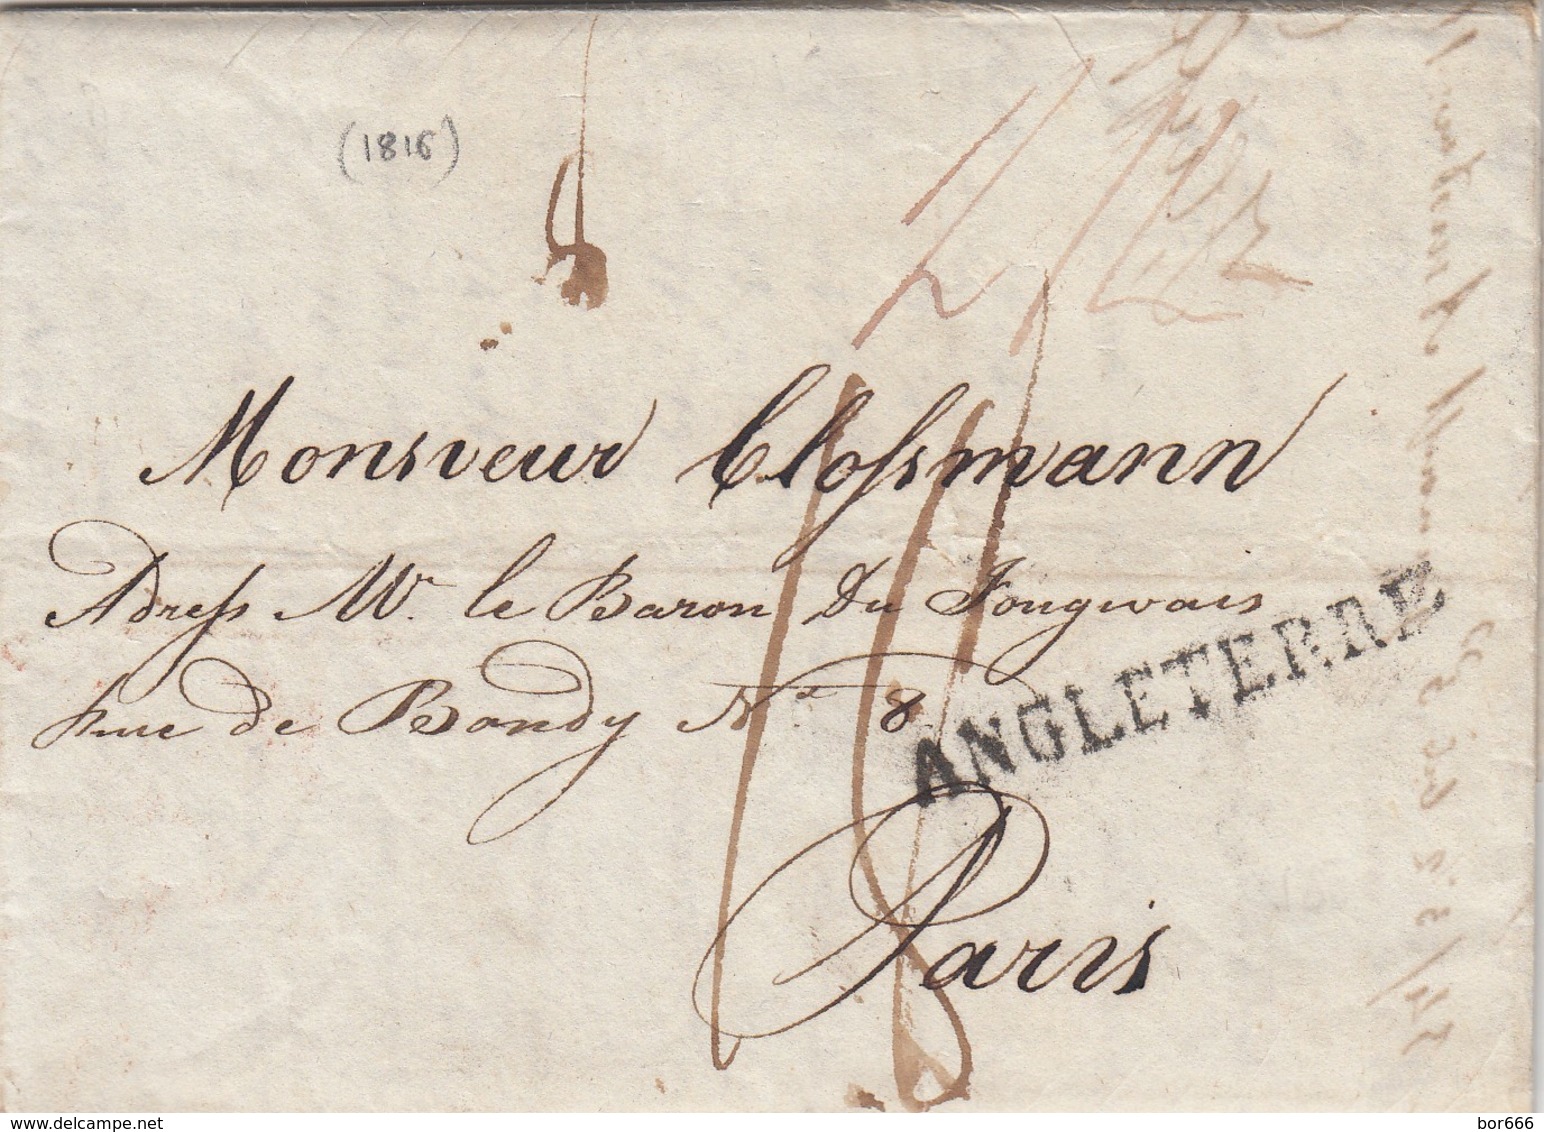 (1816)
Monsieur Cloſsmann
Adreſs Mr. le Baron Du Jongwais
Rue de Bondy No 8
ANGLETERRE
Paris
bor666